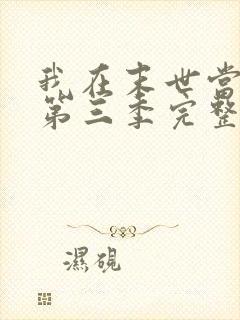 我在末世当
第三季完整
濕硯